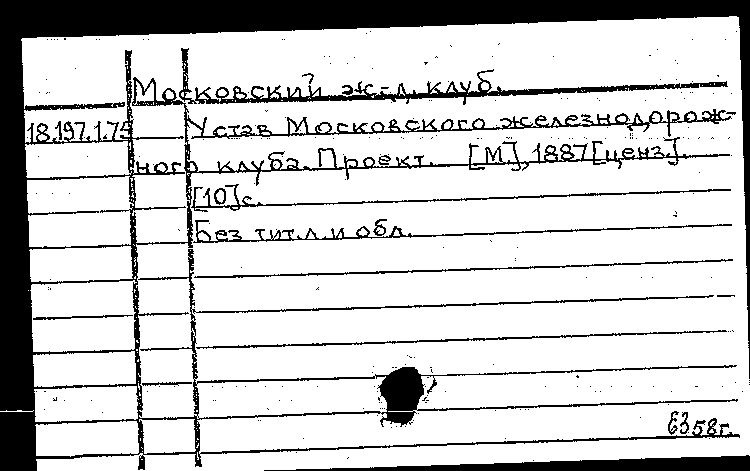 Московский ж.-д. клуб.
18.197.1.75 Устав Московского железнодорож-
ного клуба. Проект. [М], 1887 [ценз.].
[10] с.
Без тит. л. и обл.
58г.